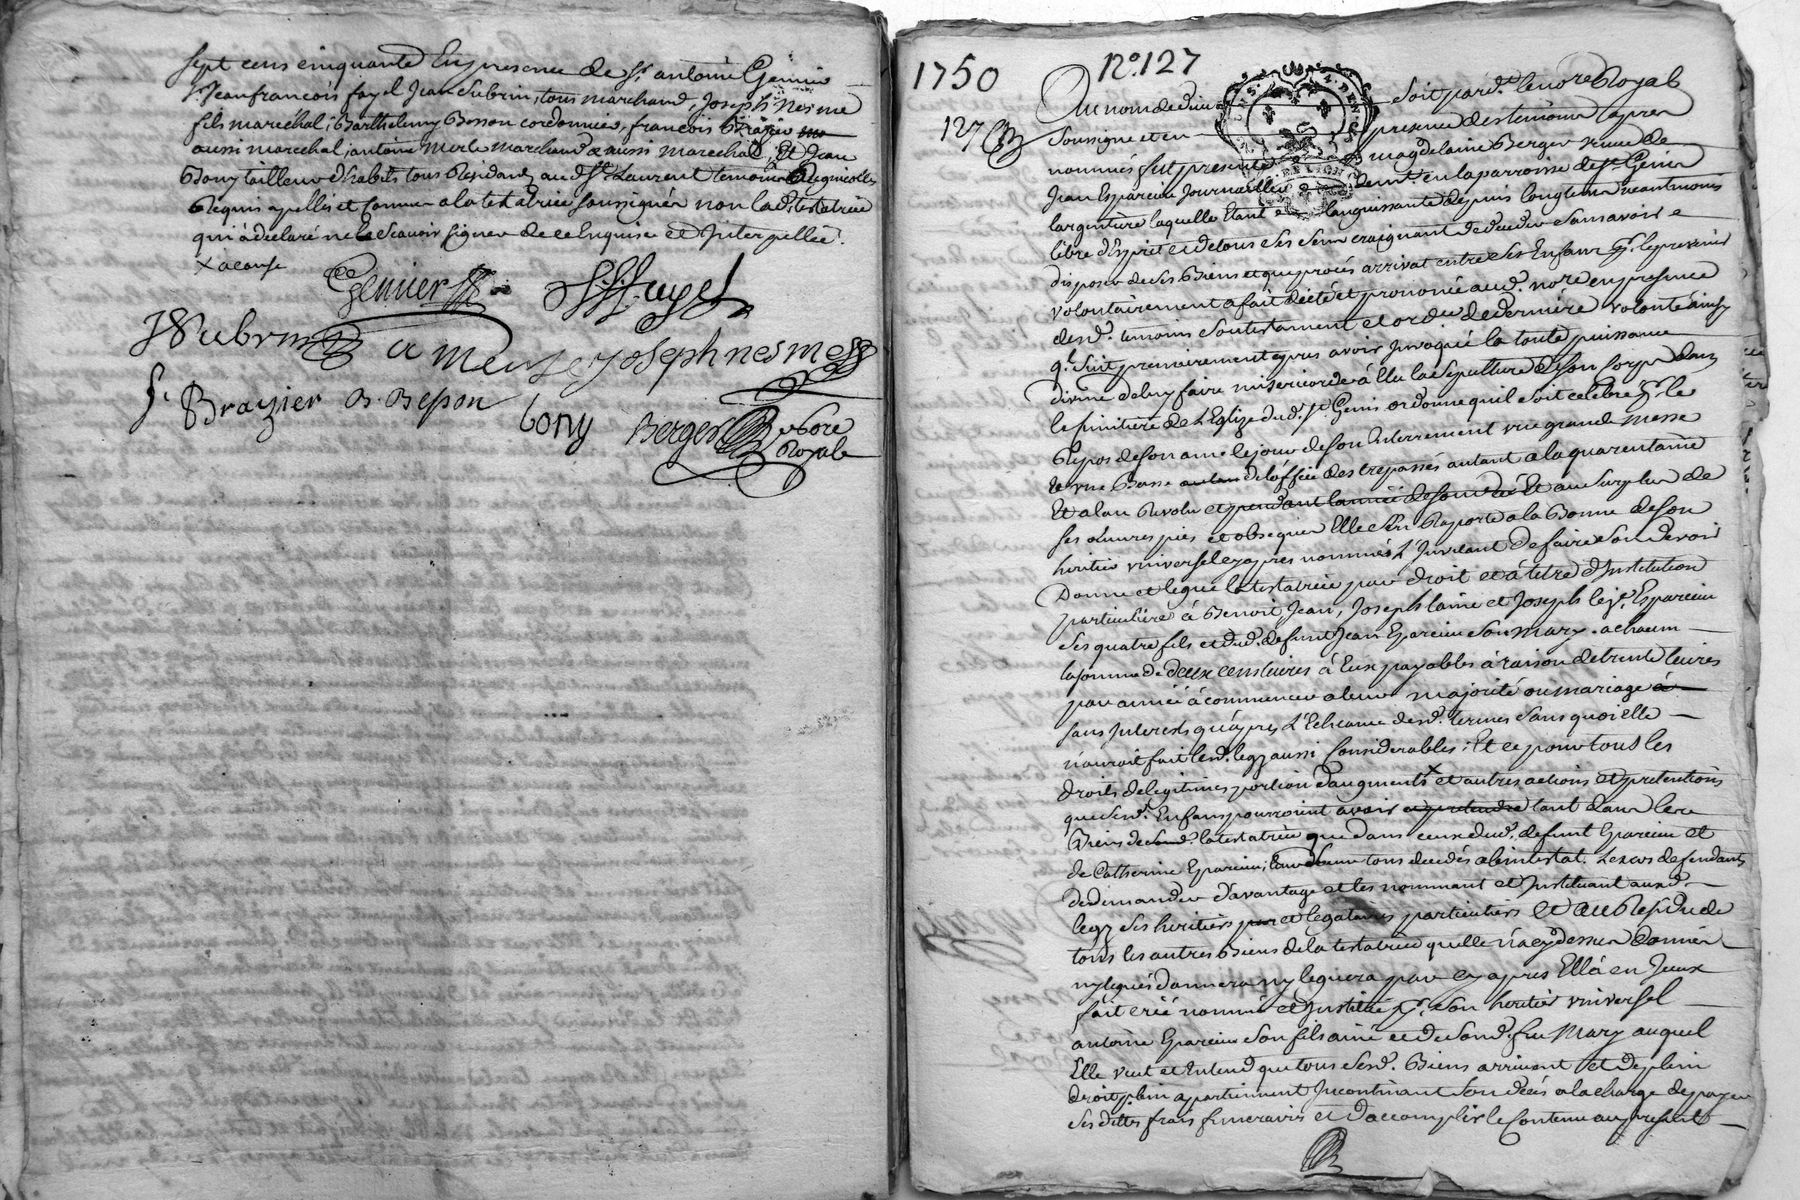 sept cens cinquante En presence de Sr. antoine Genier
Sr. Jean francois fayel Jean Subrin, tous marchand, Joseph Nesme
fils marechal; Barthelemy Besson cordonnier, francois Brazier
aussi marechal, antoine merle marchand & aussi marechal, Et Jean
Bony tailleur d'habits tous Residans aud. St. Laurent temoins
Requis apellés et sommer a la testatrice soussignér non lad. testatrice
qui a declaré ne le scavoir signer de ce Enquise et Interpellée.
x a cause
Genier
JFfayel
JSubrin
a Merle
Joseph nesme
f. Brazier
B. Besson
bony
Berger
nore
Royal
1750
No. 127
127
Au nom de dieu
soit pard. le nore Royal
soussigné et en
presence des temoins cy apres
nommés fut presente
magdelaine Berger veuve de
Jean Eparcieu Journaillier
demt. en la parroisse de St. Genis
largentiere laquelle Etant
languissante depuis longtems neantmoins
libre d'Esprit et de tous ses sens craignant de deceder sans avoir
disposer de ses Biens et que procés arrivat entre ses Enfans pr. le prevenir
volontairement a fait dicté et prononcé aud. nore en presence
desd. temoins son testament et ordre de derniere volonté ainsy
q. suit premierement apres avoir Invoqué la toute puissance
divine de luy faire misericorde a Elu la sepulture de son corps dans
le simitiere de L'Eglize dud. St. Genis ordonne quil soit celebré pr. le
Repos de son ame le jour de son Enterrement vne grande messe
Et vne Basse de l'office des trepassés autant a la quarentaine
Et a l'an Revolu et pendant l'année de son decés Et au surplus de
ses œuvres pies et obseques Elle s'En Raporte a la Bonne de son
heritier vniversel cy apres nommés L'Invitant de faire son devoir
Donne et legue la testatrice par droit et a titre d'Institution
particuliere à Benoit Jean, Joseph laine et Joseph le je. Eparcieu
ses quatre fils et dud. defunt Jean Eparcieu son mary. a chacun
la somme de deux cens livres à Eux payables à raison de trente livres
par année à commencer a leur majorité ou mariage à
sans Interests qu'apres L'Echeance desd. termes sans quoi elle
n'auroit fait lesd. legz aussi considerables; Et ce pour tous les
droits de legitimes portion d'augments x et autres actions Et pretentions
que sesd. Enfans pourroient avoir et pretendre tant dans les
Biens de lad. testatrice que dans ceux dud. defunt Eparcieu et
de Catherine Eparcieu, tous decedés abintestat. Leurs defendants
de demander d'avantage et les nommant et Instituant auxd.
legz ses heritiers et legataires particuliers Et au Residu de
tous les autres Biens de la testatrice quelle n'a cy dessus donner
ny legués donnera ny leguera par cy apres Ella en Iceux
fait créé nommé et Institué pr. son heritier vniversel
antoine Eparcieu son fils ainé et de sond. feu Mary auquel
Elle veut et Entend que tous sesd. Biens arrivent et de plein
droit plein apartiennent Incontinant son decés a la charge de payer
ses dittes frais funeraires et d'accomplir le contenu au present